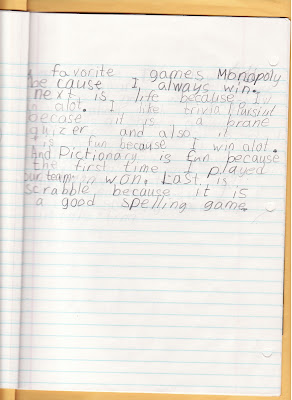 favorite games Monopoly
be cause I always win.
next is life because I
alot. I like trivia Pursiut
becase it is a brane
quizer and also it
is fun because I win alot.
And Pictionary is fun because
the first time I played
our team won. Last is
scrabble because it is
a good spelling game.